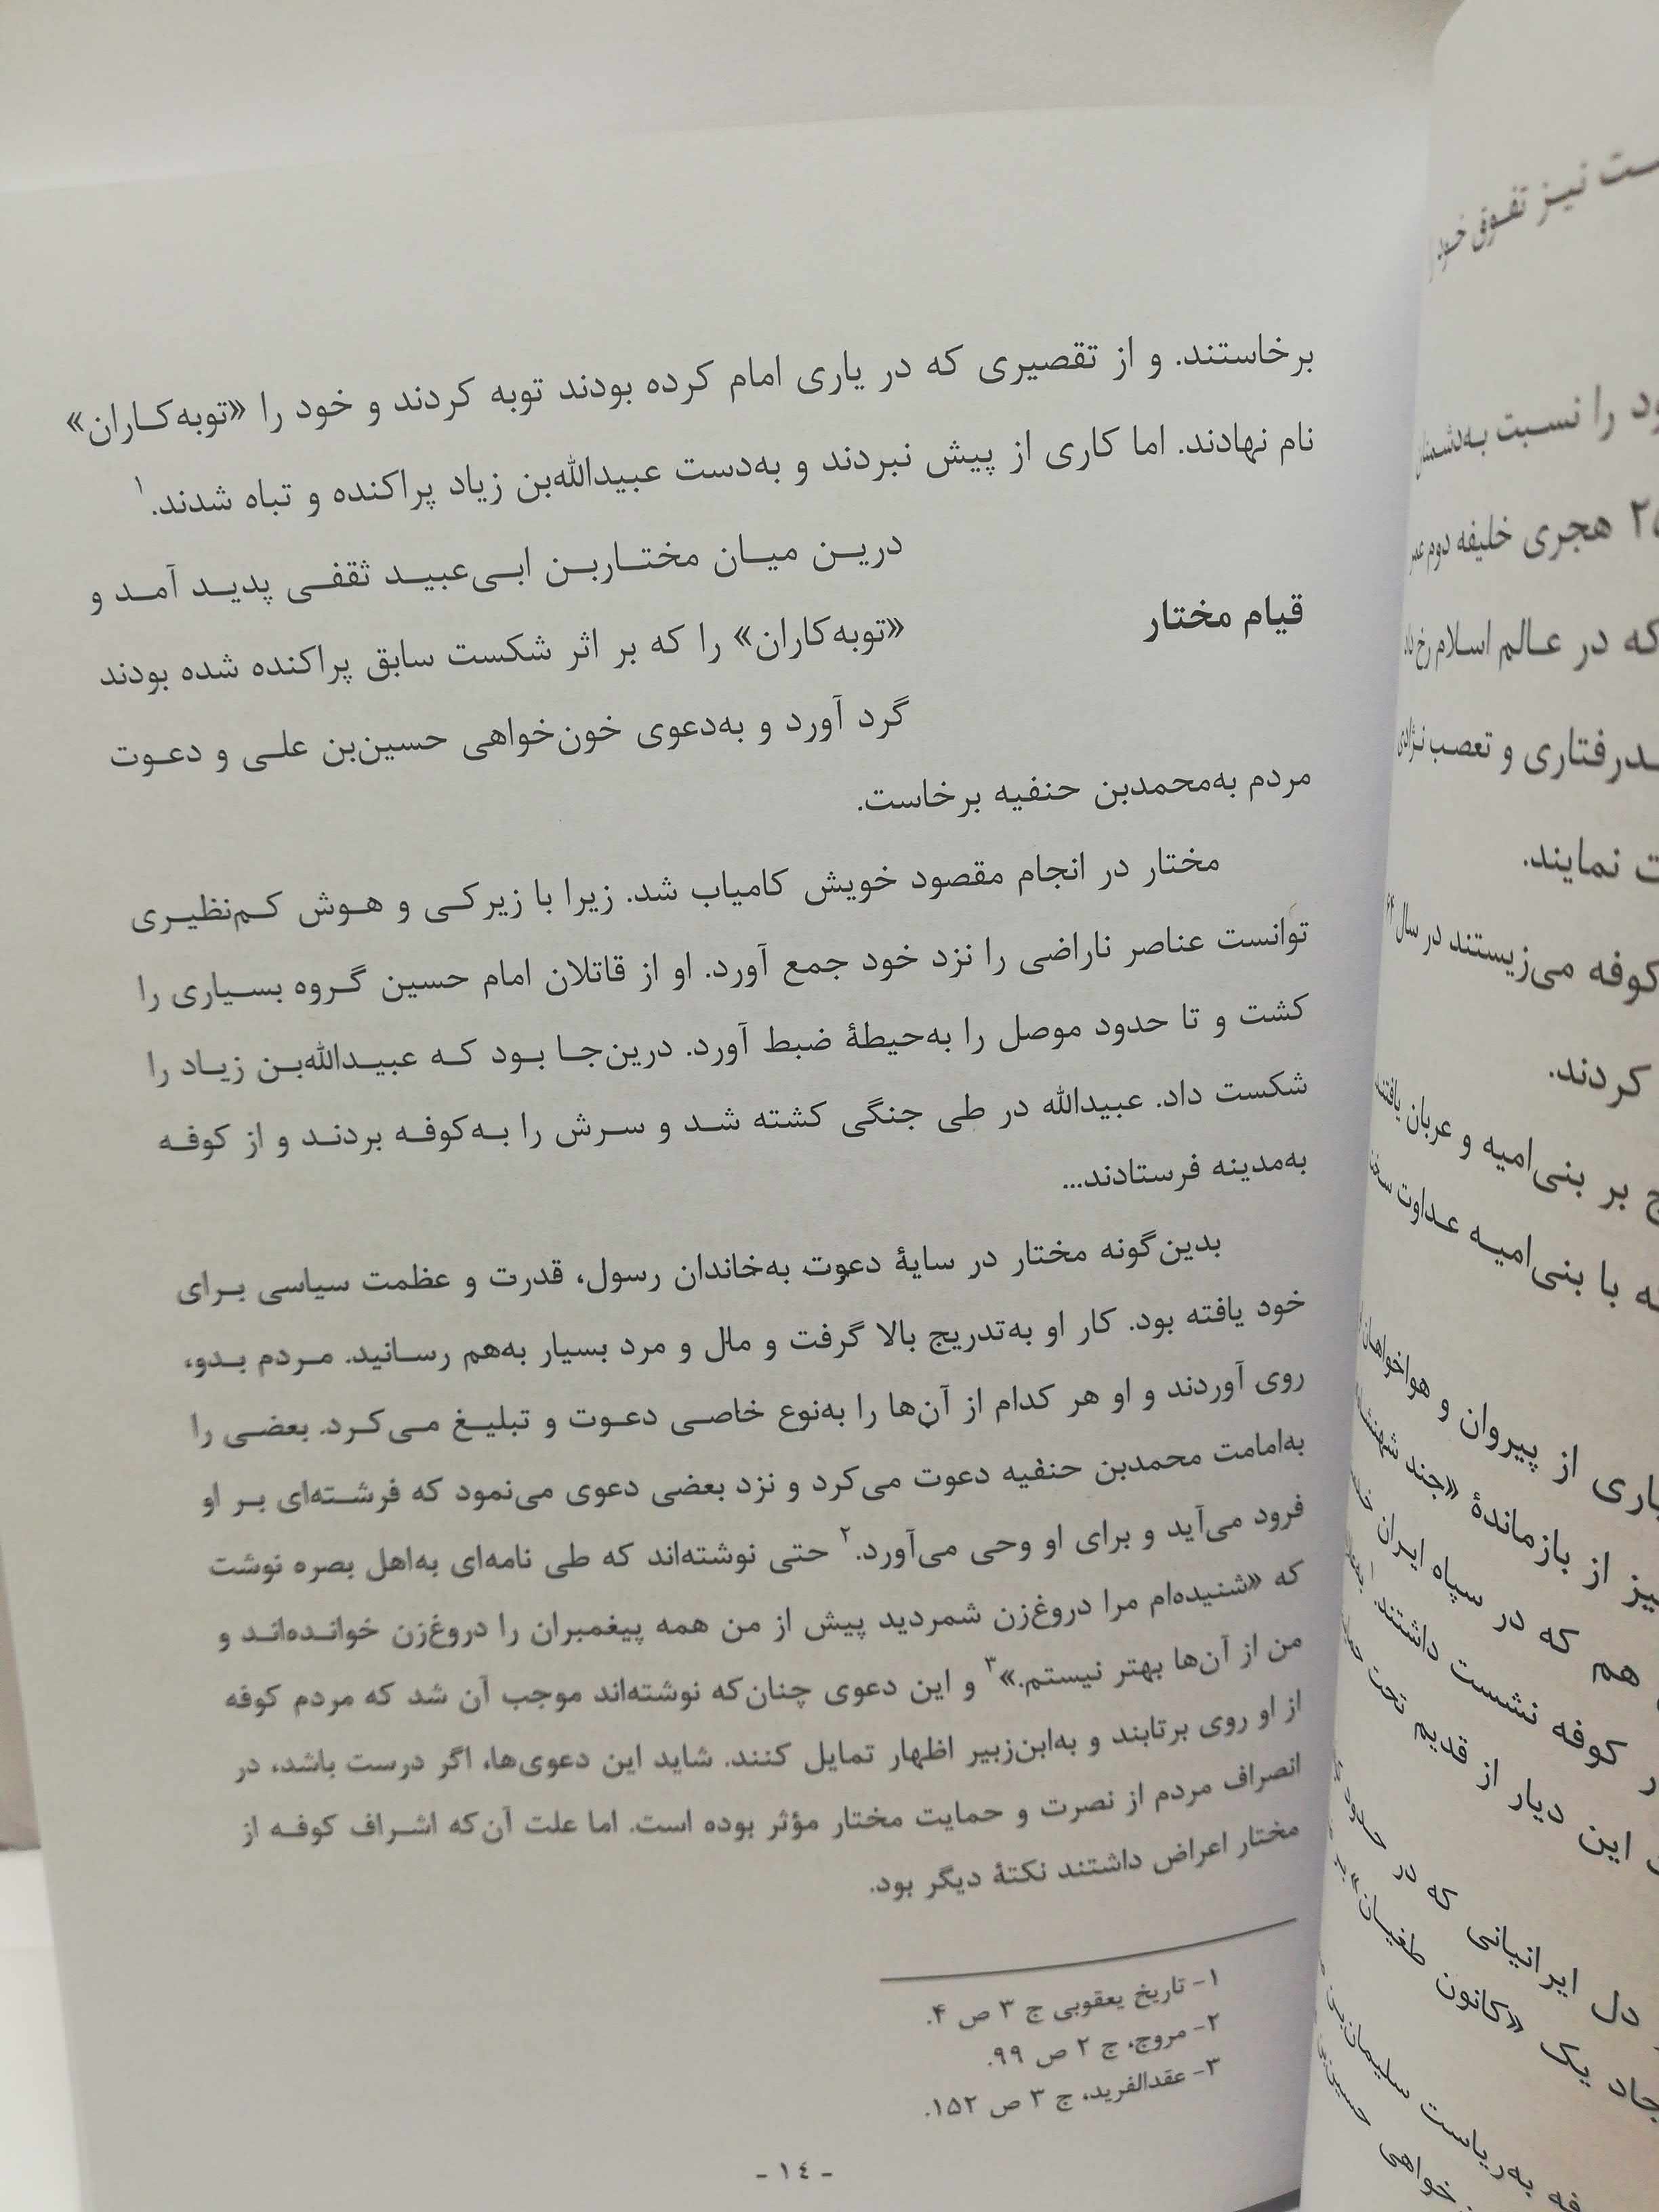 برخاستند. و از تقصیری که در یاری امام کرده بودند توبه کردند و خود را «توبه‌کاران»
نام نهادند. اما کاری از پیش نبردند و به‌دست عبیدالله‌بن زیاد پراکنده و تباه شدند.۱
قیام مختار
درین میان مختاربن ابی‌عبید ثقفی پدید آمد و
«توبه‌کاران» را که بر اثر شکست سابق پراکنده شده بودند
گرد آورد و به‌دعوی خون‌خواهی حسین‌بن علی و دعوت
مردم به‌محمدبن حنفیه برخاست.
مختار در انجام مقصود خویش کامیاب شد. زیرا با زیرکی و هوش کم‌نظیری
توانست عناصر ناراضی را نزد خود جمع آورد. او از قاتلان امام حسین گروه بسیاری را
کشت و تا حدود موصل را به‌حیطهٔ ضبط آورد. درین‌جا بود که عبیدالله‌بن زیاد را
شکست داد. عبیدالله در طی جنگی کشته شد و سرش را به‌کوفه بردند و از کوفه
به‌مدینه فرستادند...
بدین‌گونه مختار در سایهٔ دعوت به‌خاندان رسول، قدرت و عظمت سیاسی برای
خود یافته بود. کار او به‌تدریج بالا گرفت و مال و مرد بسیار به‌هم رسانید. مردم بدو،
روی آوردند و او هر کدام از آن‌ها را به‌نوع خاصی دعوت و تبلیغ می‌کرد. بعضی را
به‌امامت محمدبن حنفیه دعوت می‌کرد و نزد بعضی دعوی می‌نمود که فرشته‌ای بر او
فرود می‌آید و برای او وحی می‌آورد.۲ حتی نوشته‌اند که طی نامه‌ای به‌اهل بصره نوشت
که «شنیده‌ام مرا دروغ‌زن شمردید پیش از من همه پیغمبران را دروغ‌زن خوانده‌اند و
من از آن‌ها بهتر نیستم.»۳ و این دعوی چنان‌که نوشته‌اند موجب آن شد که مردم کوفه
از او روی برتابند و به‌ابن‌زبیر اظهار تمایل کنند. شاید این دعوی‌ها، اگر درست باشد، در
انصراف مردم از نصرت و حمایت مختار مؤثر بوده است. اما علت آن‌که اشراف کوفه از
مختار اعراض داشتند نکتهٔ دیگر بود.
۱- تاریخ یعقوبی ج ۳ ص ۴.
۲- مروج، ج ۲ ص ۹۹.
۳- عقدالفرید، ج ۳ ص ۱۵۲.
- ۱۴ -
نیز تفوق خود
را نسبت به‌دشمنان
هجری خلیفه دوم عمر
که در عالم اسلام رخ داد
و تعصب نژادی
نمایند.
کوفه می‌زیستند در سال
کردند.
بر بنی‌امیه و عربان یافتند
با بنی‌امیه عداوت سخت
از پیروان و هواخواهان
از بازماندهٔ «جند شهنشاه
هم که در سپاه ایران
کوفه نشست داشتند.
این دیار از قدیم تحت
دل ایرانیانی که در حدود
یک «کانون طغیان»
به‌ریاست سلیمان‌بن